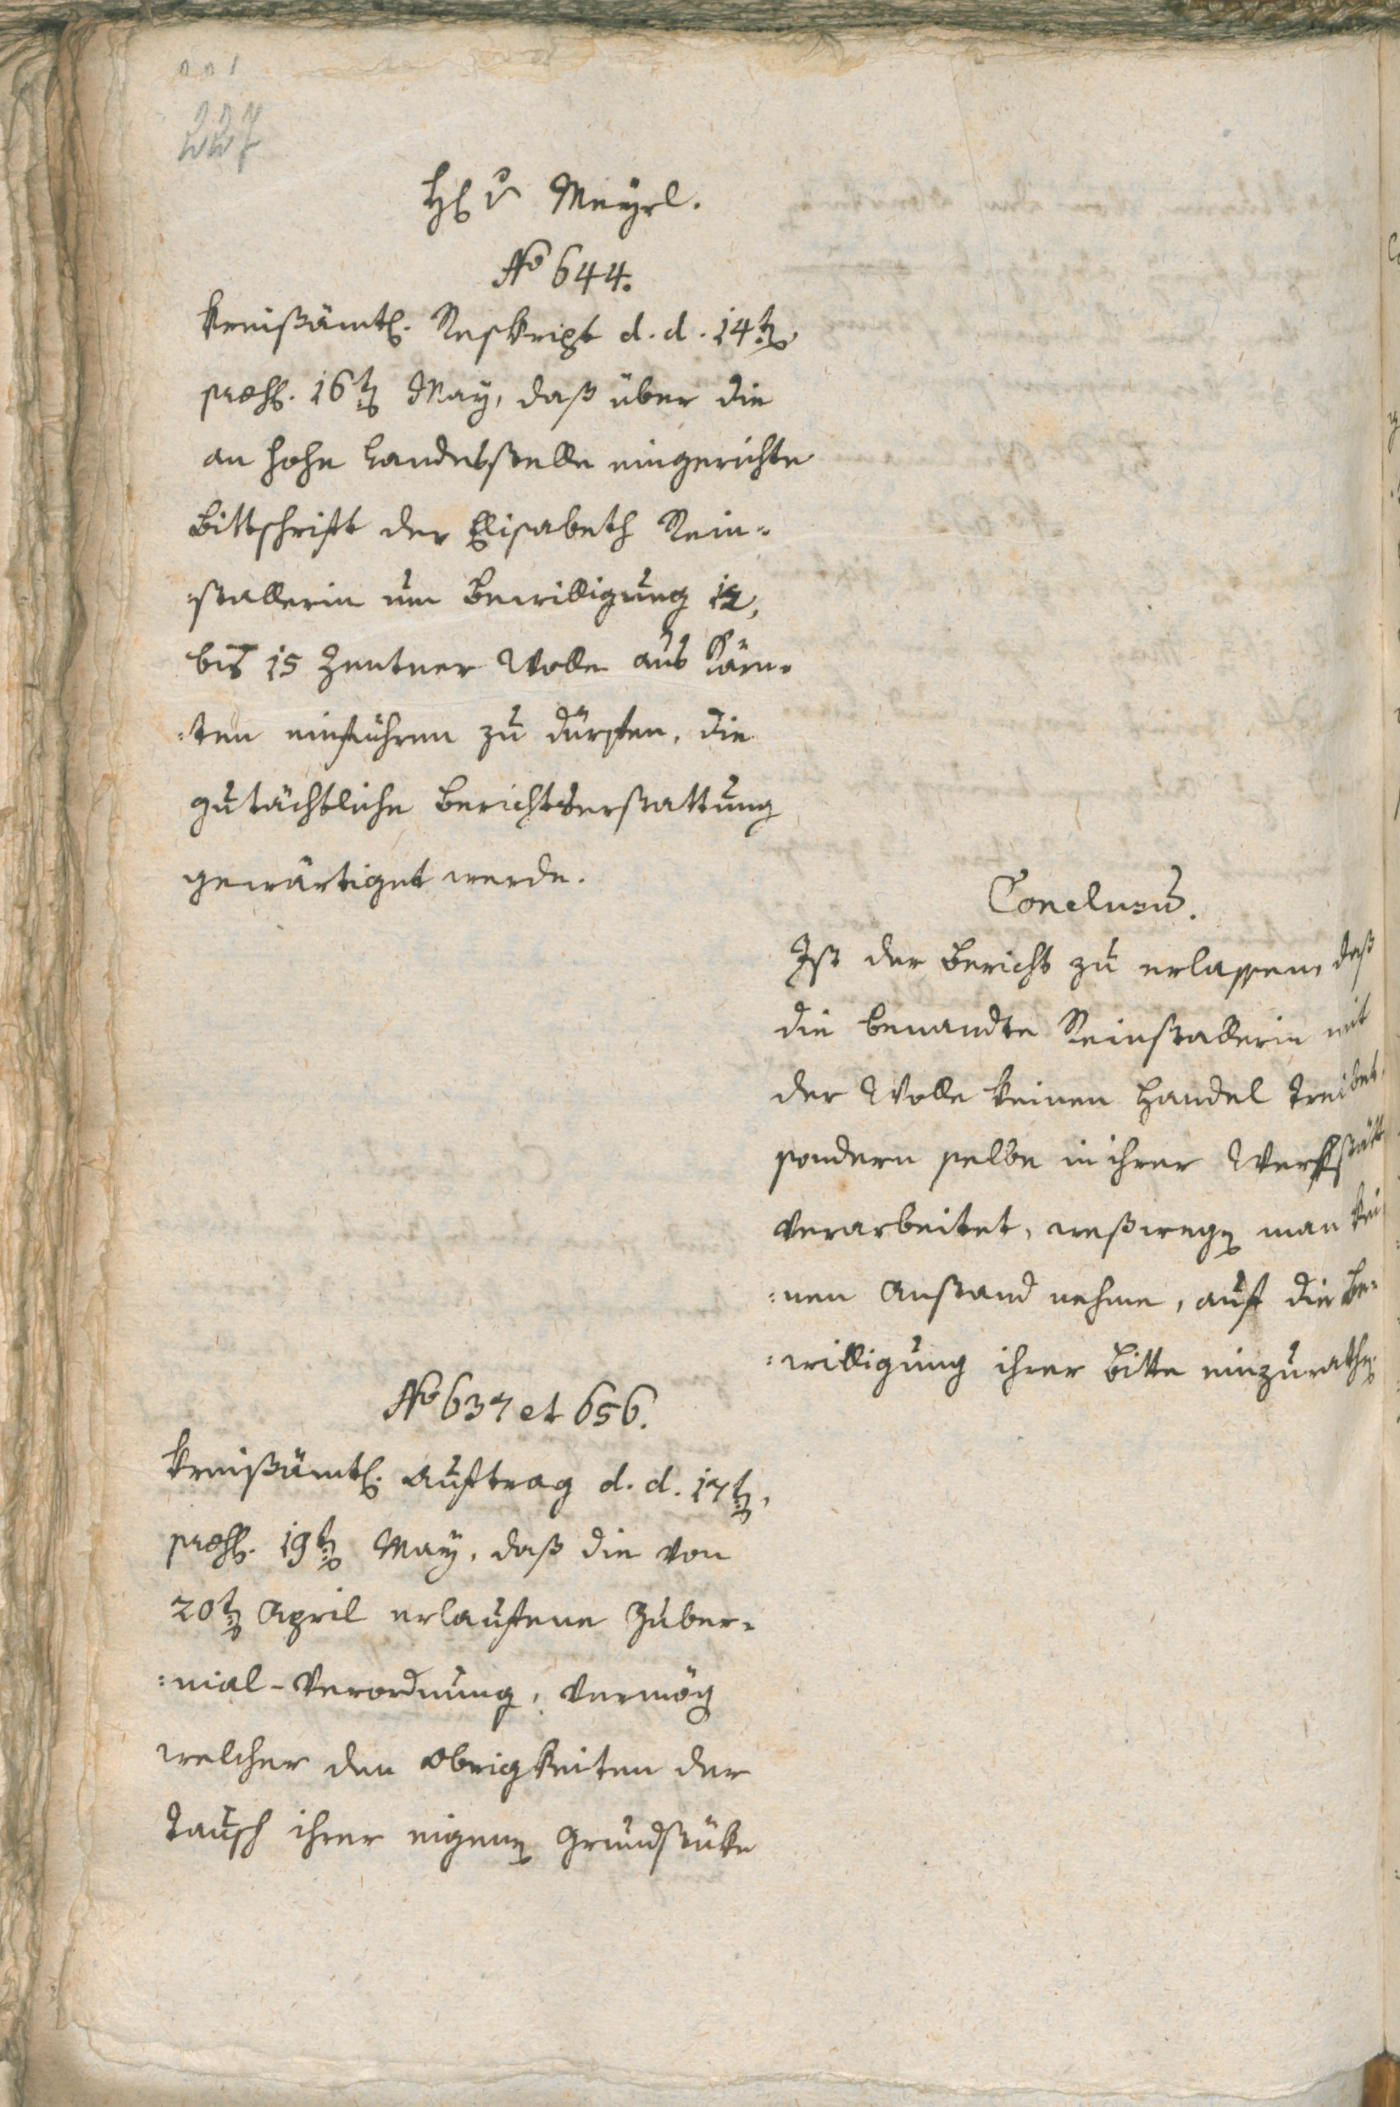 H. v Meÿrl.
No 644.
Kreißämtl. Reskript d. d. 14t.
præs. 16t. May, daß über die
an hohe Landesstelle eingereichte
Bittschrift der Elisabeth Rein-
:stallerin um Bewilligung 12,
bis 15 Zentner Wolle aus Kärn-
:ten einführen zu dürfen, die
gutächtliche Berichtserstattung
gewärtiget werde.
Conclusum.
Ist der Bericht zu erlassen, daß
die benandte Reinstallerin mit
der Wolle keinen Handel treibet,
sondern selbe in ihrer Werkstätt
verarbeitet, weßwegen man kei
:nen Anstand nehme, auf die Be-
:willigung ihrer Bitte einzurathen.
No 637 et 656.
Kreißämtl. Auftrag d. d. 17t.,
præs. 19t. May, daß die von
20t. April erlaufene Guber-
:nial-Verordnung, vermög
welcher den Obrigkeiten der
Tausch ihrer eigenen Grundstüke